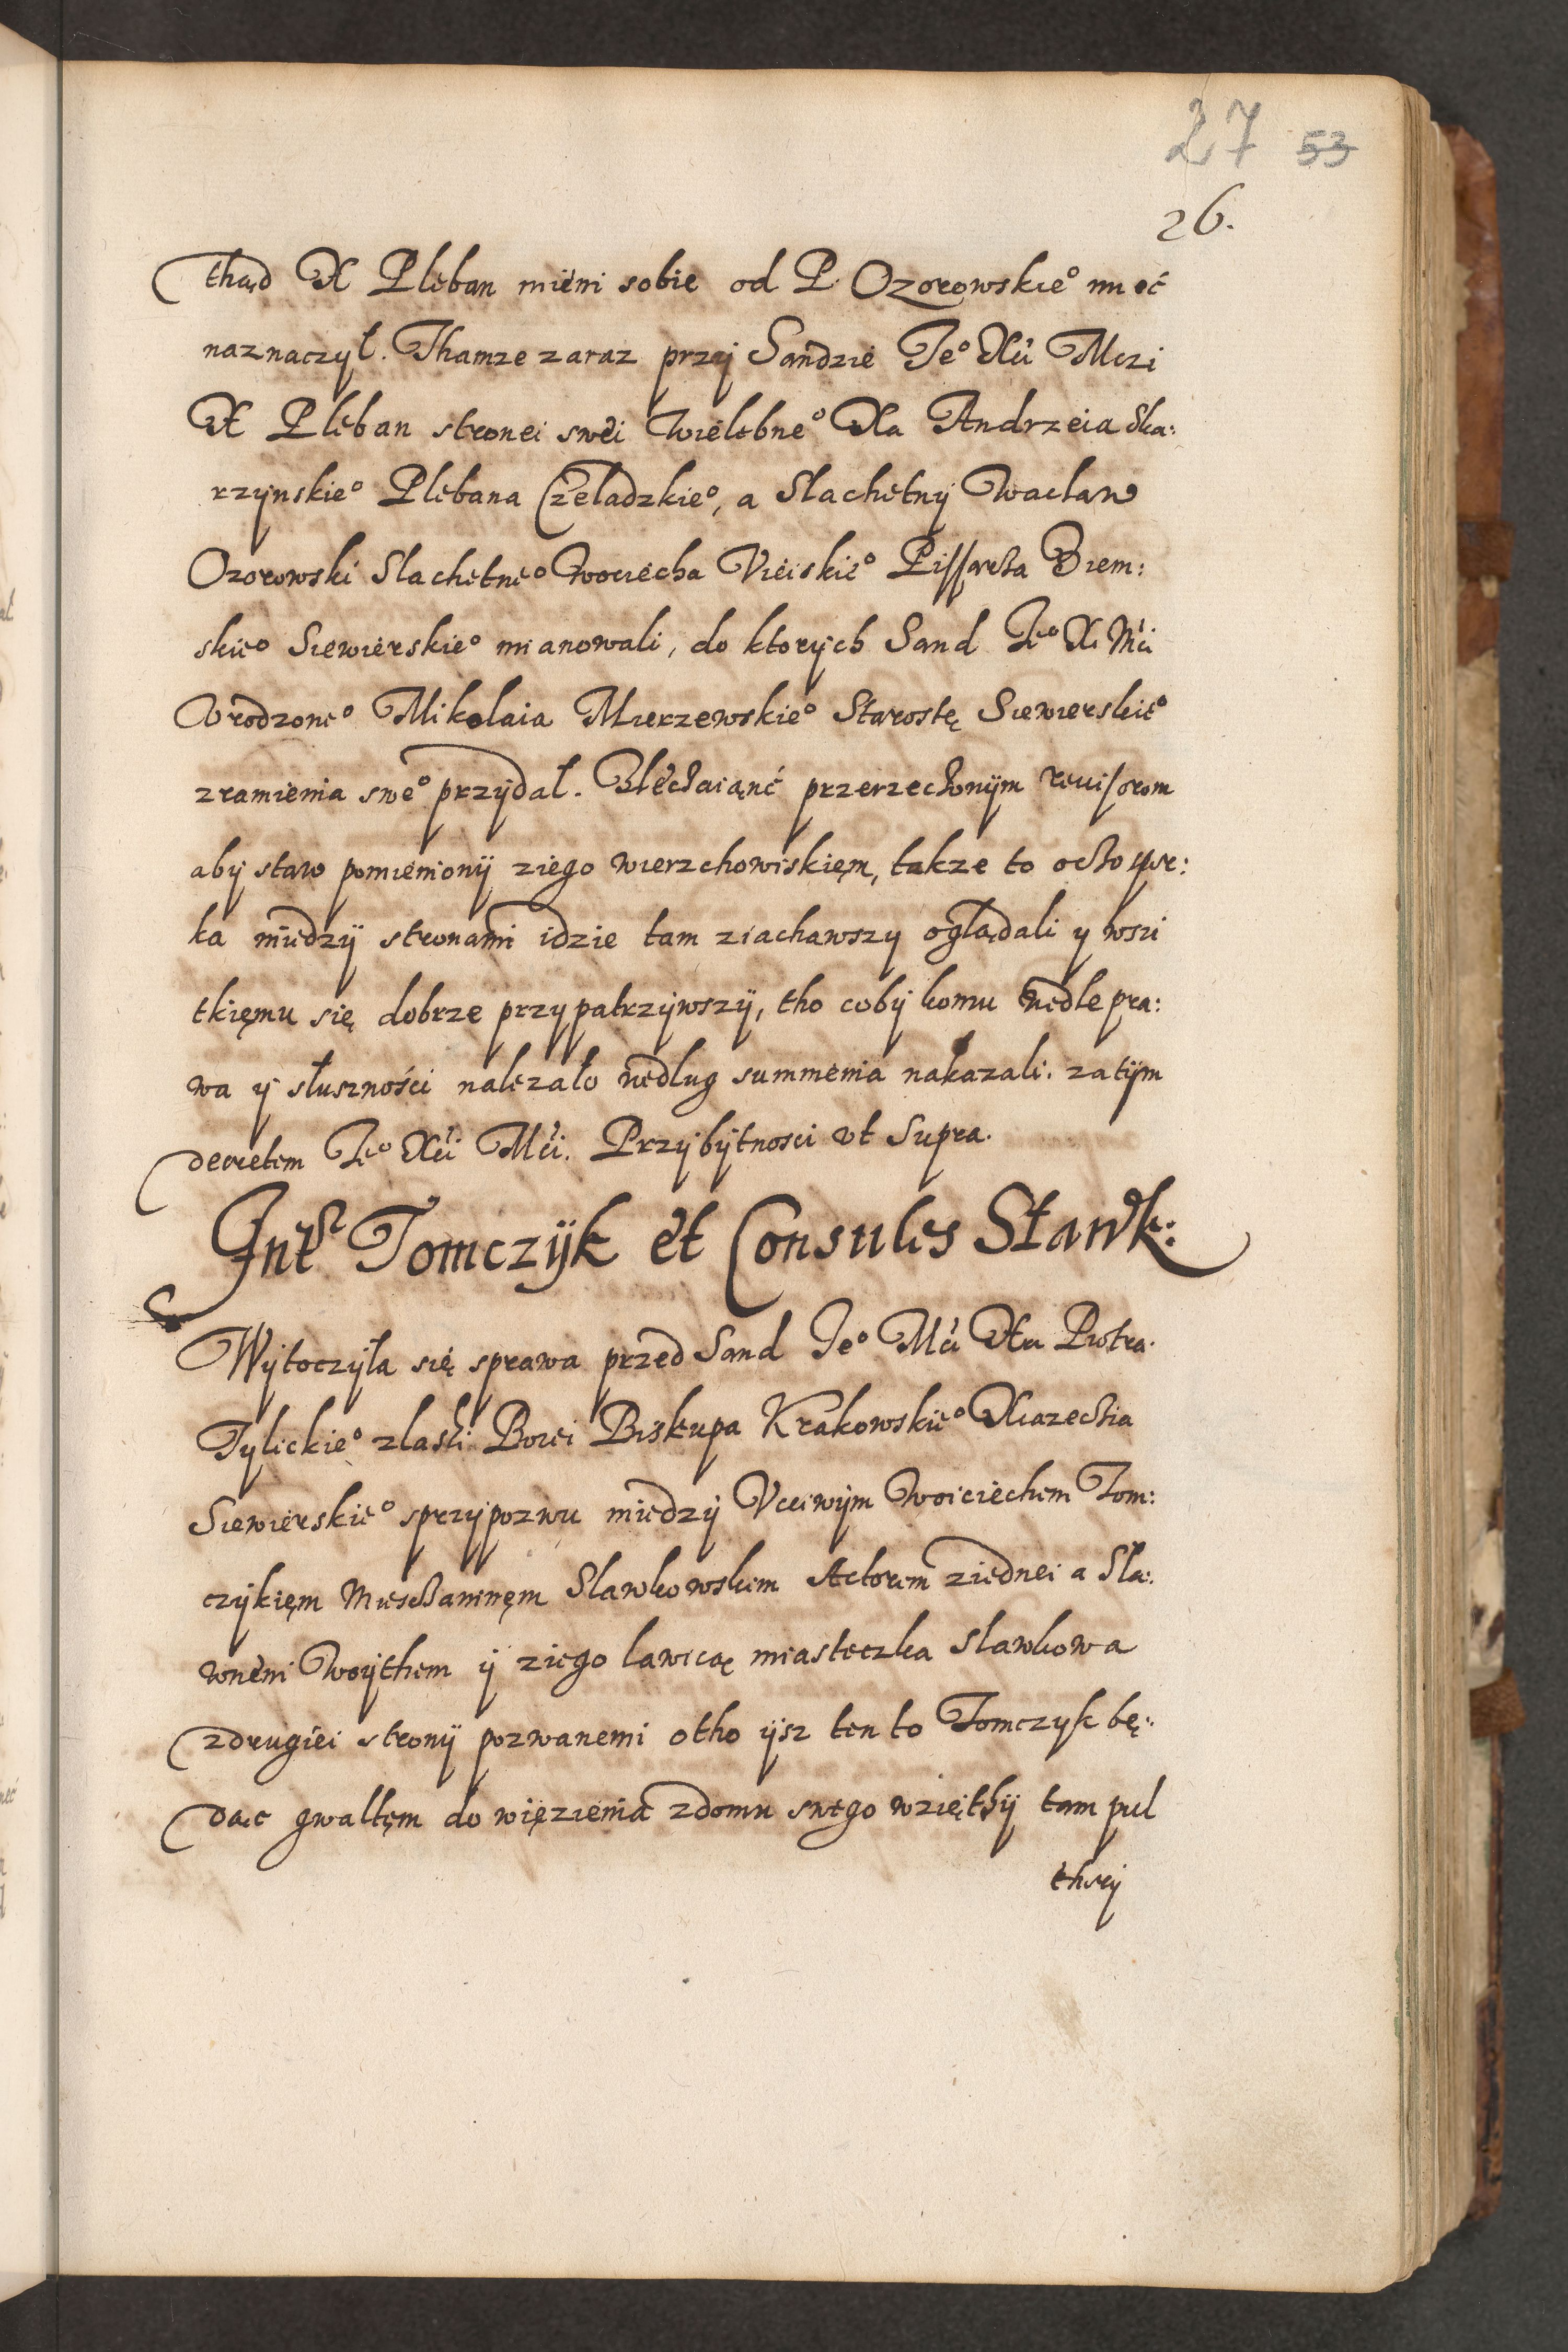 27 53
26.
thąd X Pleban mieni sobie od P. Ozorowskieº mieć
naznaczył. Thamze zaraz przÿ Sandzie Jeº Xci Mczi
X Pleban stronei swei Wielebneº Xa Andrzeia Ska:
rzÿnskieº Plebana Czeladzkieº, a Slachetnÿ Waclaw
Ozorowski Slachetneº Wociecha Vieiskieº Pissarza Ziem:
skieº Siewierskieº mianowali, do ktorych Sand Jeº X Mci
Vrodzoneº Mikolaia Mierzewskieº Starostę Siewierskieº
zramienia sweº przÿdał. Zlecaiąnć przerzeczonÿm reuisorom
abÿ staw pomienionÿ ziego wierzchowiskięm, takze to oczo
ka miedzÿ stronami idzie tam ziachawszy oglądali y wszi
tkięmu się dobrze przypatrzÿwszÿ, tho cobÿ komu wedle pra:
wa ÿ słuszności nalezało wedlug summenia nakazali. zatÿm
decretem Jeº Xci Mci. Przÿbÿtnosci vt Supra.
Inter Tomczÿk et Consules Sławk:
Wÿtoczÿła się sprawa przed Sand Jeº Mci Xa Piotra
Tylickieº zlaski Bozei Biskupa Krakowskieº Xiazecia
Siewierskieº sprzÿpozwu miedzÿ Vcciwÿm Woiciechem Tom:
czÿkięm Miesczaninęm Slawkowskim Actorem ziednei a Sla:
wnemi Woÿthem ÿ ziego lawicą miasteczka Slawkowa
zdrugiei stronÿ pozwanemi otho ÿsz ten to Tomczÿk bę:
dąc gwałtęm do więzienia zdomu swego wzięthÿ tam puł
thrzÿ